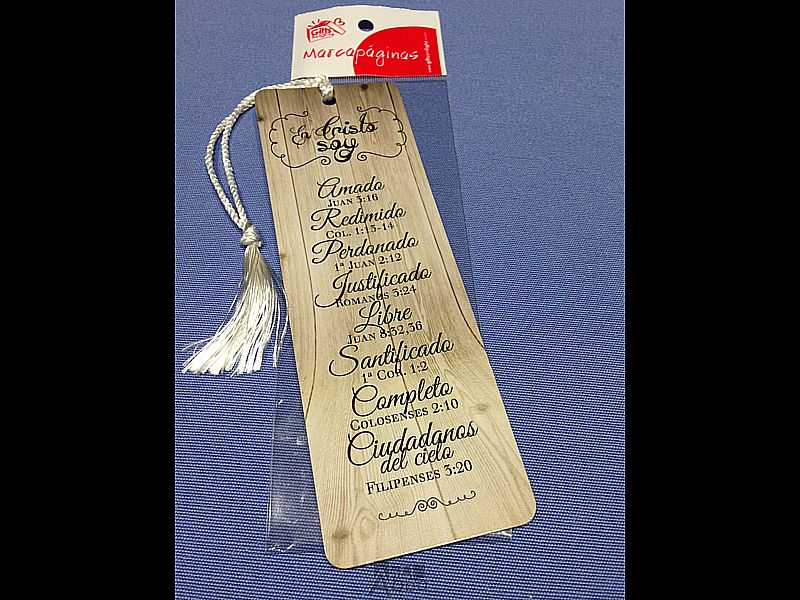 Gifts
Marcapáginas
En Cristo
soy
Amado
Juan 3:16
Redimido
Col. 1:13-14
Perdonado
1ª Juan 2:12
Justificado
Romanos 3:24
Libre
Juan 8:32,36
Santificado
1ª Cor. 1:2
Completo
Colosenses 2:10
Ciudadanos
del cielo
Filipenses 3:20